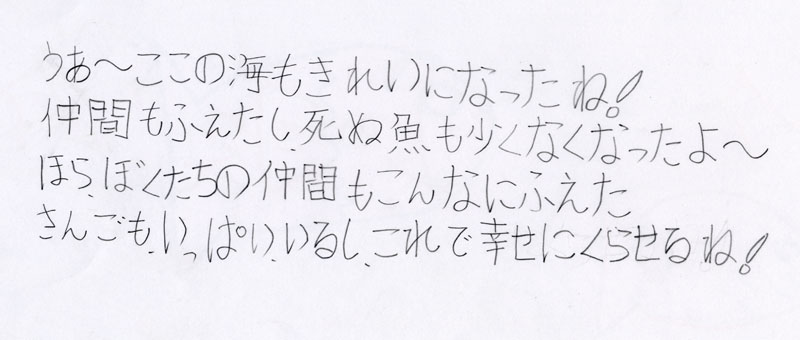 うあ〜ここの海もきれいになったね!
仲間もふえたし、死ぬ魚も少くなくなったよ〜
ほら、ぼくたちの仲間もこんなにふえた
さんごも、いっぱい、いるし、これで幸せにくらせるね!